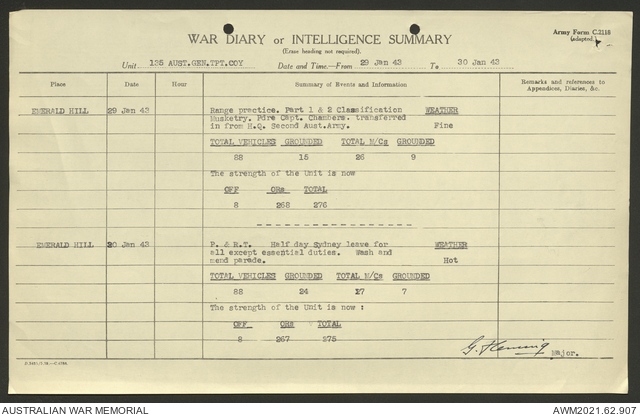 WAR DIARY or INTELLIGENCE SUMMARY
(Erase heading not required).
Army Form C.2118
(adapted.)
Unit 135 AUST.GEN.TPT.COY Date and Time.—From 29 Jan 43 To 30 Jan 43
Place Date Hour Summary of Events and Information Remarks and references to
Appendices, Diaries, &c.
EMERALD HILL 29 Jan 43 Range practice. Part 1 & 2 Classification WEATHER
Musketry. Pdre Capt. Chambers. transferred
in from H.Q. Second Aust.Army. Fine
TOTAL VEHICLES GROUNDED TOTAL M/Cs GROUNDED
88 15 26 9
The strength of the Unit is now
OFF ORs TOTAL
8 268 276
EMERALD HILL 30 Jan 43 P. & R.T. Half day Sydney leave for WEATHER
all except essential duties. Wash and
mend parade. Hot
TOTAL VEHICLES GROUNDED TOTAL M/Cs GROUNDED
88 24 27 7
The strength of the Unit is now :
OFF ORs TOTAL
8 267 275
G. Fleming
Major.
AUSTRALIAN WAR MEMORIAL AWM2021.62.907